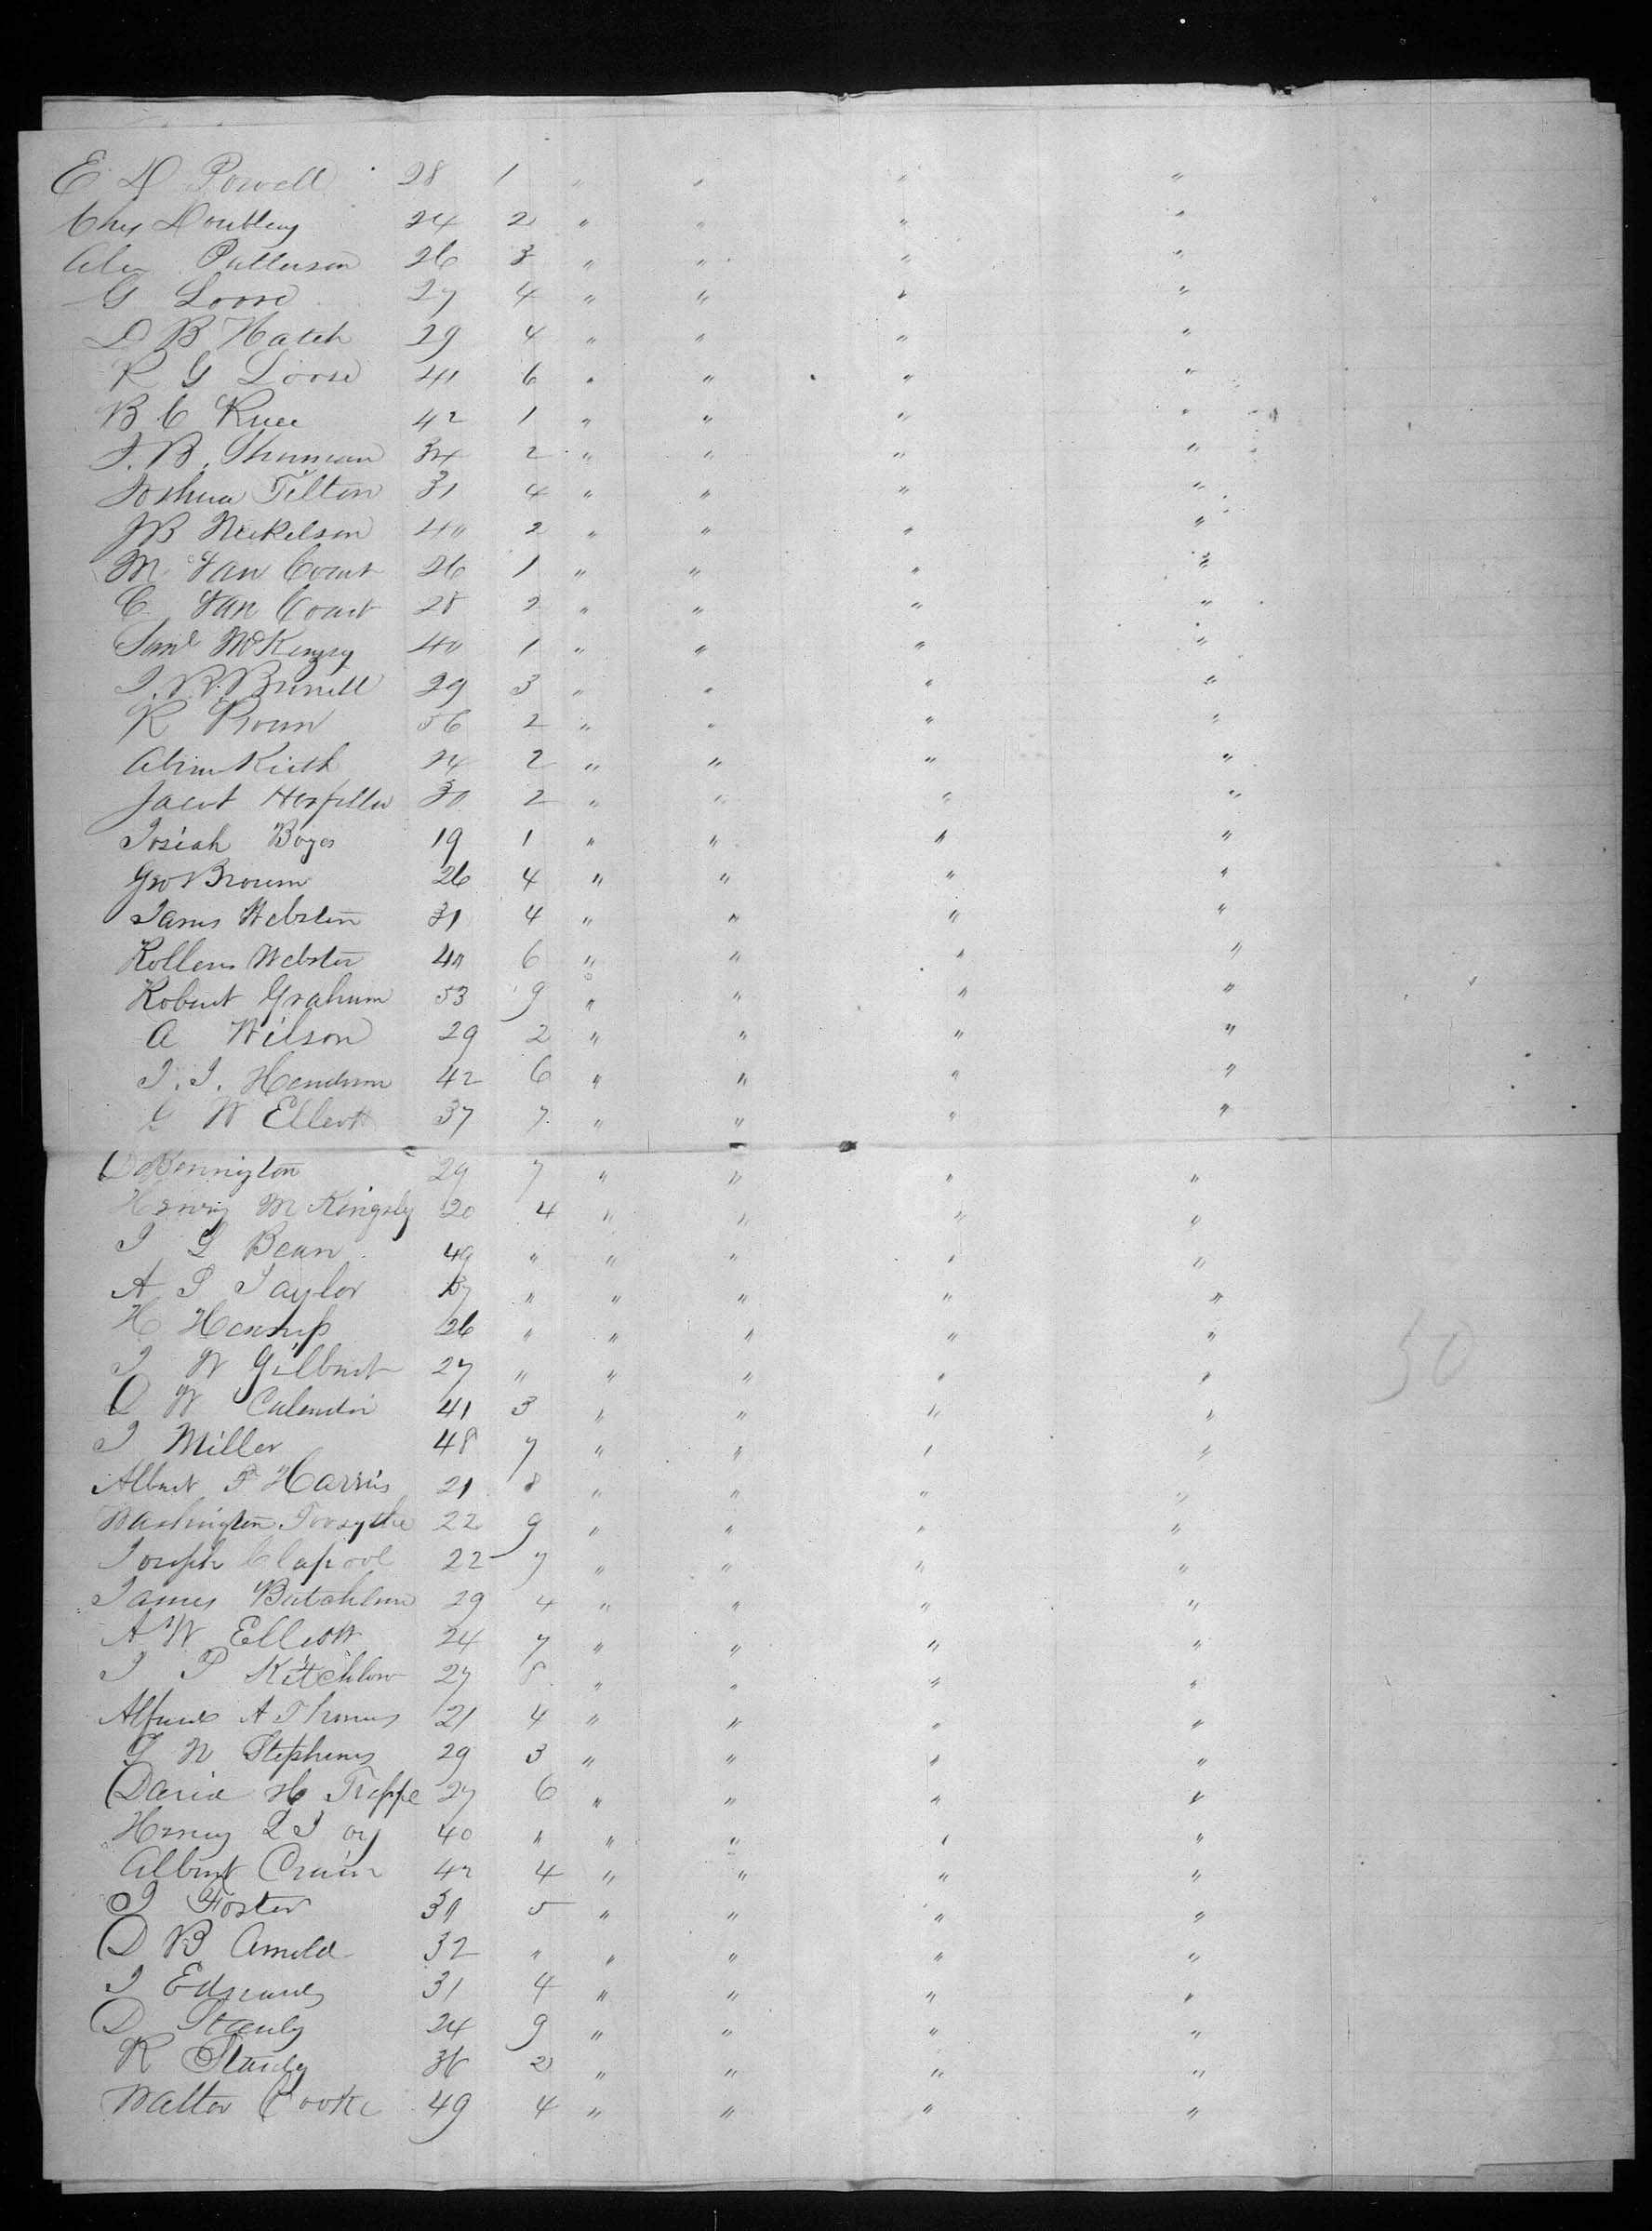 E D Powell 28 1 " " " "
Chs Doubleny 24 2 " " " "
Alex Patterson 26 3 " " " "
G Loose 27 4 " " " "
D B Hatch 29 4 " " " "
R G Loose 41 6 " " " "
B C Knee 42 1 " " " "
J. B. Thurman 34 2 " " " "
Joshua Tilton 31 4 " " " "
JB Nickelson 40 2 " " " "
M Van Court 26 1 " " " "
C Van Court 28 2 " " " "
Saml McKenzey 40 1 " " " "
J. R. 29 3 " " " "
R 56 2 " " " "
Abim Keith 24 2 " " " "
Jacob 30 2 " " " "
Josiah Boyes 19 1 " " " "
Geo Brown 26 4 " " " "
James Webster 31 4 " " " "
Rollens Webster 40 6 " " " "
Robert Graham 53 9 " " " "
A Wilson 29 2 " " " "
J. J. 42 6 " " " "
G W Elliott 37 7 " " " "
D Kennington 29 7 " " " "
Henry M Kingsly 20 4 " " " "
J L Bean 49 " " " " "
A S Taylor 37 " " " " "
H 26 " " " " "
J W Gilbert 27 " " " " "
D W Calendar 41 3 " " " "
J Miller 48 7 " " " "
Albert F Harris 21 8 " " " "
Washington Forsythe 22 9 " " " "
Joseph Clapool 22 7 " " " "
James 29 4 " " " "
A W Elliott 24 7 " " " "
J P Kitchlow 27 8 " " " "
Alfred A Thomas 21 4 " " " "
G W Stephens 29 3 " " " "
David H Treppe 27 6 " " " "
Henry L Joy 40 " " " " "
Albert Crain 42 4 " " " "
J Foster 31 5 " " " "
D B Arnold 32 " " " " "
J Edwards 31 4 " " " "
D Stanly 24 9 " " " "
R Stanly 36 2 " " " "
Walter Cooke 49 4 " " " "
50